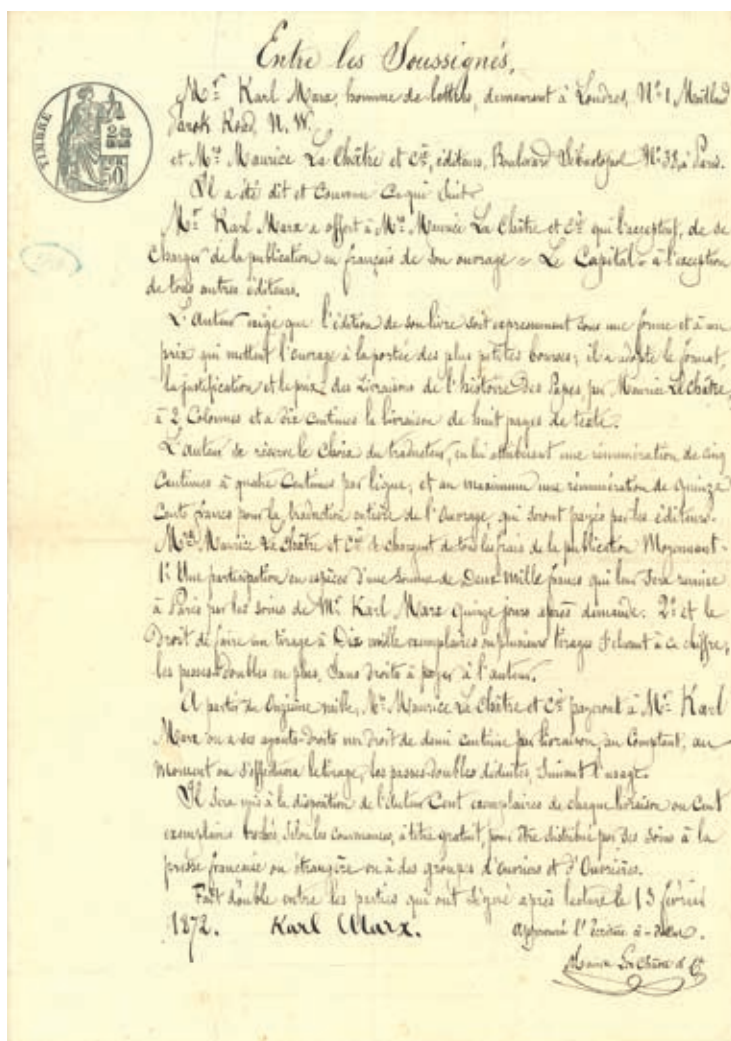 Entre les Soussignés,
TIMBRE
50
Mr. Karl Marx, homme de lettres, demeurant à Londres, No. 1, Maitland
Park Road, N. W.
et Mr. Maurice La Châtre et Cie, éditeurs, Boulevard Sébastopol No. 38, à Paris.
Il a été dit et Convenu Ce qui Suit
Mr. Karl Marx a offert à Mr. Maurice La Châtre et Cie qui l'acceptent, de se
Charger de la publication en français de son ouvrage Le Capital à l'exception
de tous autres éditeurs.
L'auteur exige que l'édition de son livre soit expressément sous une forme et à un
prix qui mettent l'ouvrage à la portée des plus petites bourses; il a adopté le format,
la justification et le prix des Livraisons de l'histoire des Papes par Maurice La Châtre,
à 2 Colonnes et à dix Centimes la livraison de huit pages de texte.
L'auteur se réserve le Choix du traducteur, en lui attribuant une rémunération de Cinq
Centimes à quatre Centimes par ligne, et au maximum une rémunération de Quinze
Cents francs pour la traduction entière de l'Ouvrage, qui seront payés par les éditeurs.
Mr. Maurice La Châtre et Cie se chargent de tous les frais de la publication Moyennant
1o Une participation en espèces d'une Somme de Deux mille francs qui leur Sera remise
à Paris par les soins de Mr. Karl Marx quinze jours après demande. 2o et le
Droit de faire un tirage à Dix mille exemplaires ou plusieurs tirages s'élevant à ce chiffre,
les passes doubles en plus, Sans droits à payer à l'auteur.
A partir du Onzième mille, Mr. Maurice La Châtre et Cie payeront à Mr. Karl
Marx ou à ses ayants-droits un droit de demi centime par livraison, au Comptant, au
Moment où s'effectuera le tirage, les passes doubles déduites, Suivant l'usage.
Il Sera mis à la disposition de l'Auteur Cent exemplaires de chaque livraison ou Cent
exemplaires brochés, Selon les convenances, à titre gratuit, pour être distribués par ses soins à la
presse française ou étrangère ou à des groupes d'ouvriers et d'Ouvrières.
Fait double entre les parties qui ont Signé après lecture le 13 février
1872. Karl Marx. Approuvé l'écriture
Maurice La Châtre et Cie